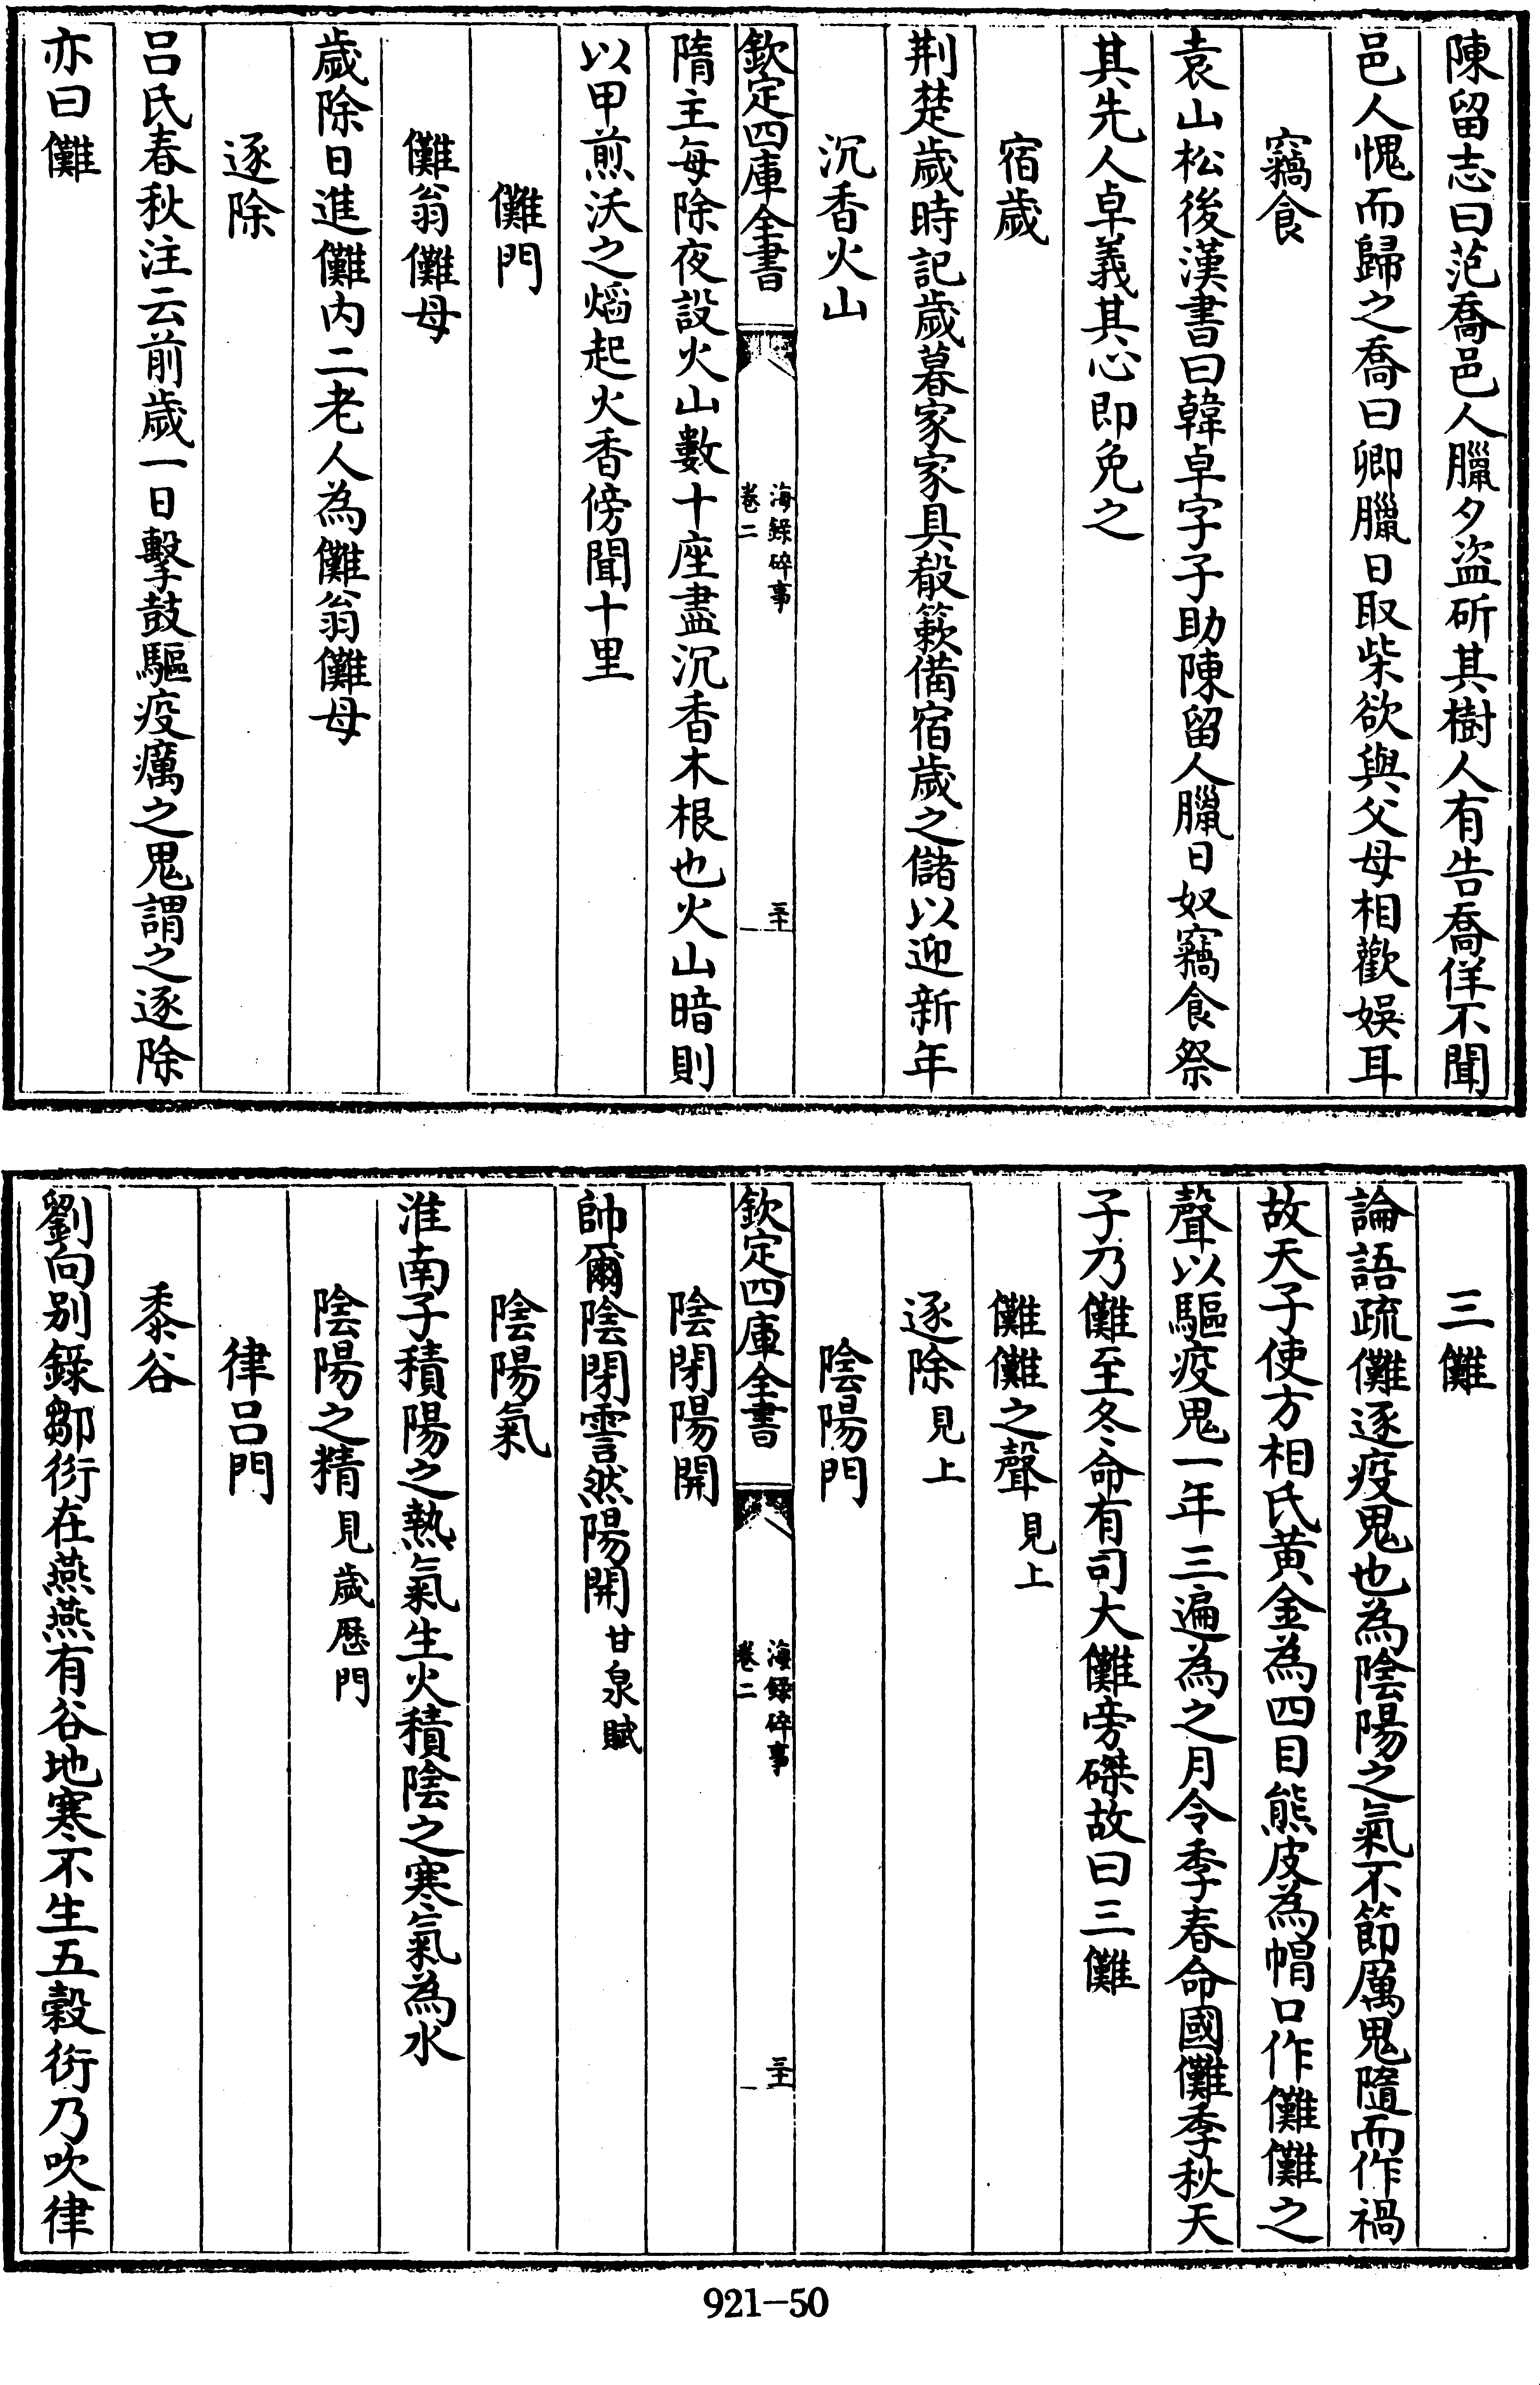 陳留志曰范喬邑人臘夕盜斫其樹人有告喬佯不聞
邑人愧而歸之喬曰卿臘日取柴欲與父母相歡娛耳
竊食
袁山松後漢書曰韓卓字子助陳留人臘日奴竊食祭
其先人卓義其心即免之
宿歲
荆楚歲時記歲暮家家具殽簌備宿歲之儲以迎新年
沉香火山
欽定四庫全書
海錄碎事
卷二
三十
隋主每除夜設火山數十座盡沉香木根也火山暗則
以甲煎沃之熖起火香傍聞十里
儺門
儺翁儺母
歲除日進儺内二老人為儺翁儺母
逐除
吕氏春秋注云前歲一日擊鼓驅疫癘之鬼謂之逐除
亦曰儺
三儺
論語疏儺逐疫鬼也為陰陽之氣不節厲鬼隨而作禍
故天子使方相氏黄金為四目熊皮為帽口作儺儺之
聲以驅疫鬼一年三遍為之月令季春命國儺季秋天
子乃儺至冬命有司大儺旁磔故曰三儺
儺儺之聲見上
逐除見上
陰陽門
欽定四庫全書
海録碎事
卷二
三十一
陰閉陽開
帥爾陰閉霅然陽開甘泉賦
陰陽氣
淮南子積陽之熱氣生火積陰之寒氣為水
陰陽之精見歲厯門
律吕門
黍谷
劉向别錄鄒衍在燕燕有谷地寒不生五穀衍乃吹律
921-50